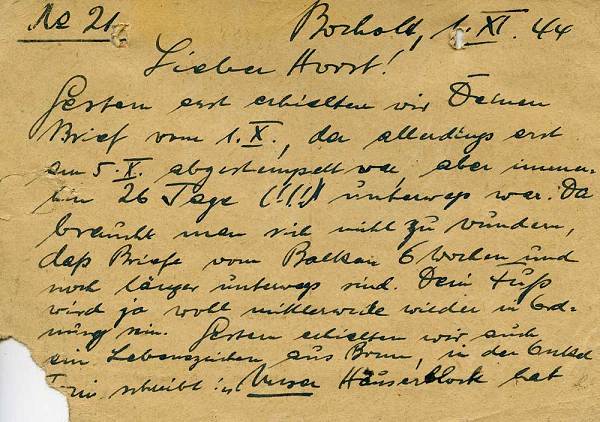 No 21.
Bocholt, 1. XI. 44
Lieber Horst!
Gestern erst erhielten wir Deinen
Brief vom 1. X., der allerdings erst
am 5. X. abgestempelt war, aber immer-
hin 26 Tage (!!!) unterwegs war. Da
braucht man sich nicht zu wundern,
daß Briefe vom Balkan 6 Wochen und
noch länger unterwegs sind. Dein Fuß
wird ja wohl mittlerweile wieder in Ord-
nung sein. Gestern erhielten wir auch
ein Lebenszeichen aus Bonn, in der Onkel
schreibt: „Unser Häuserblock hat